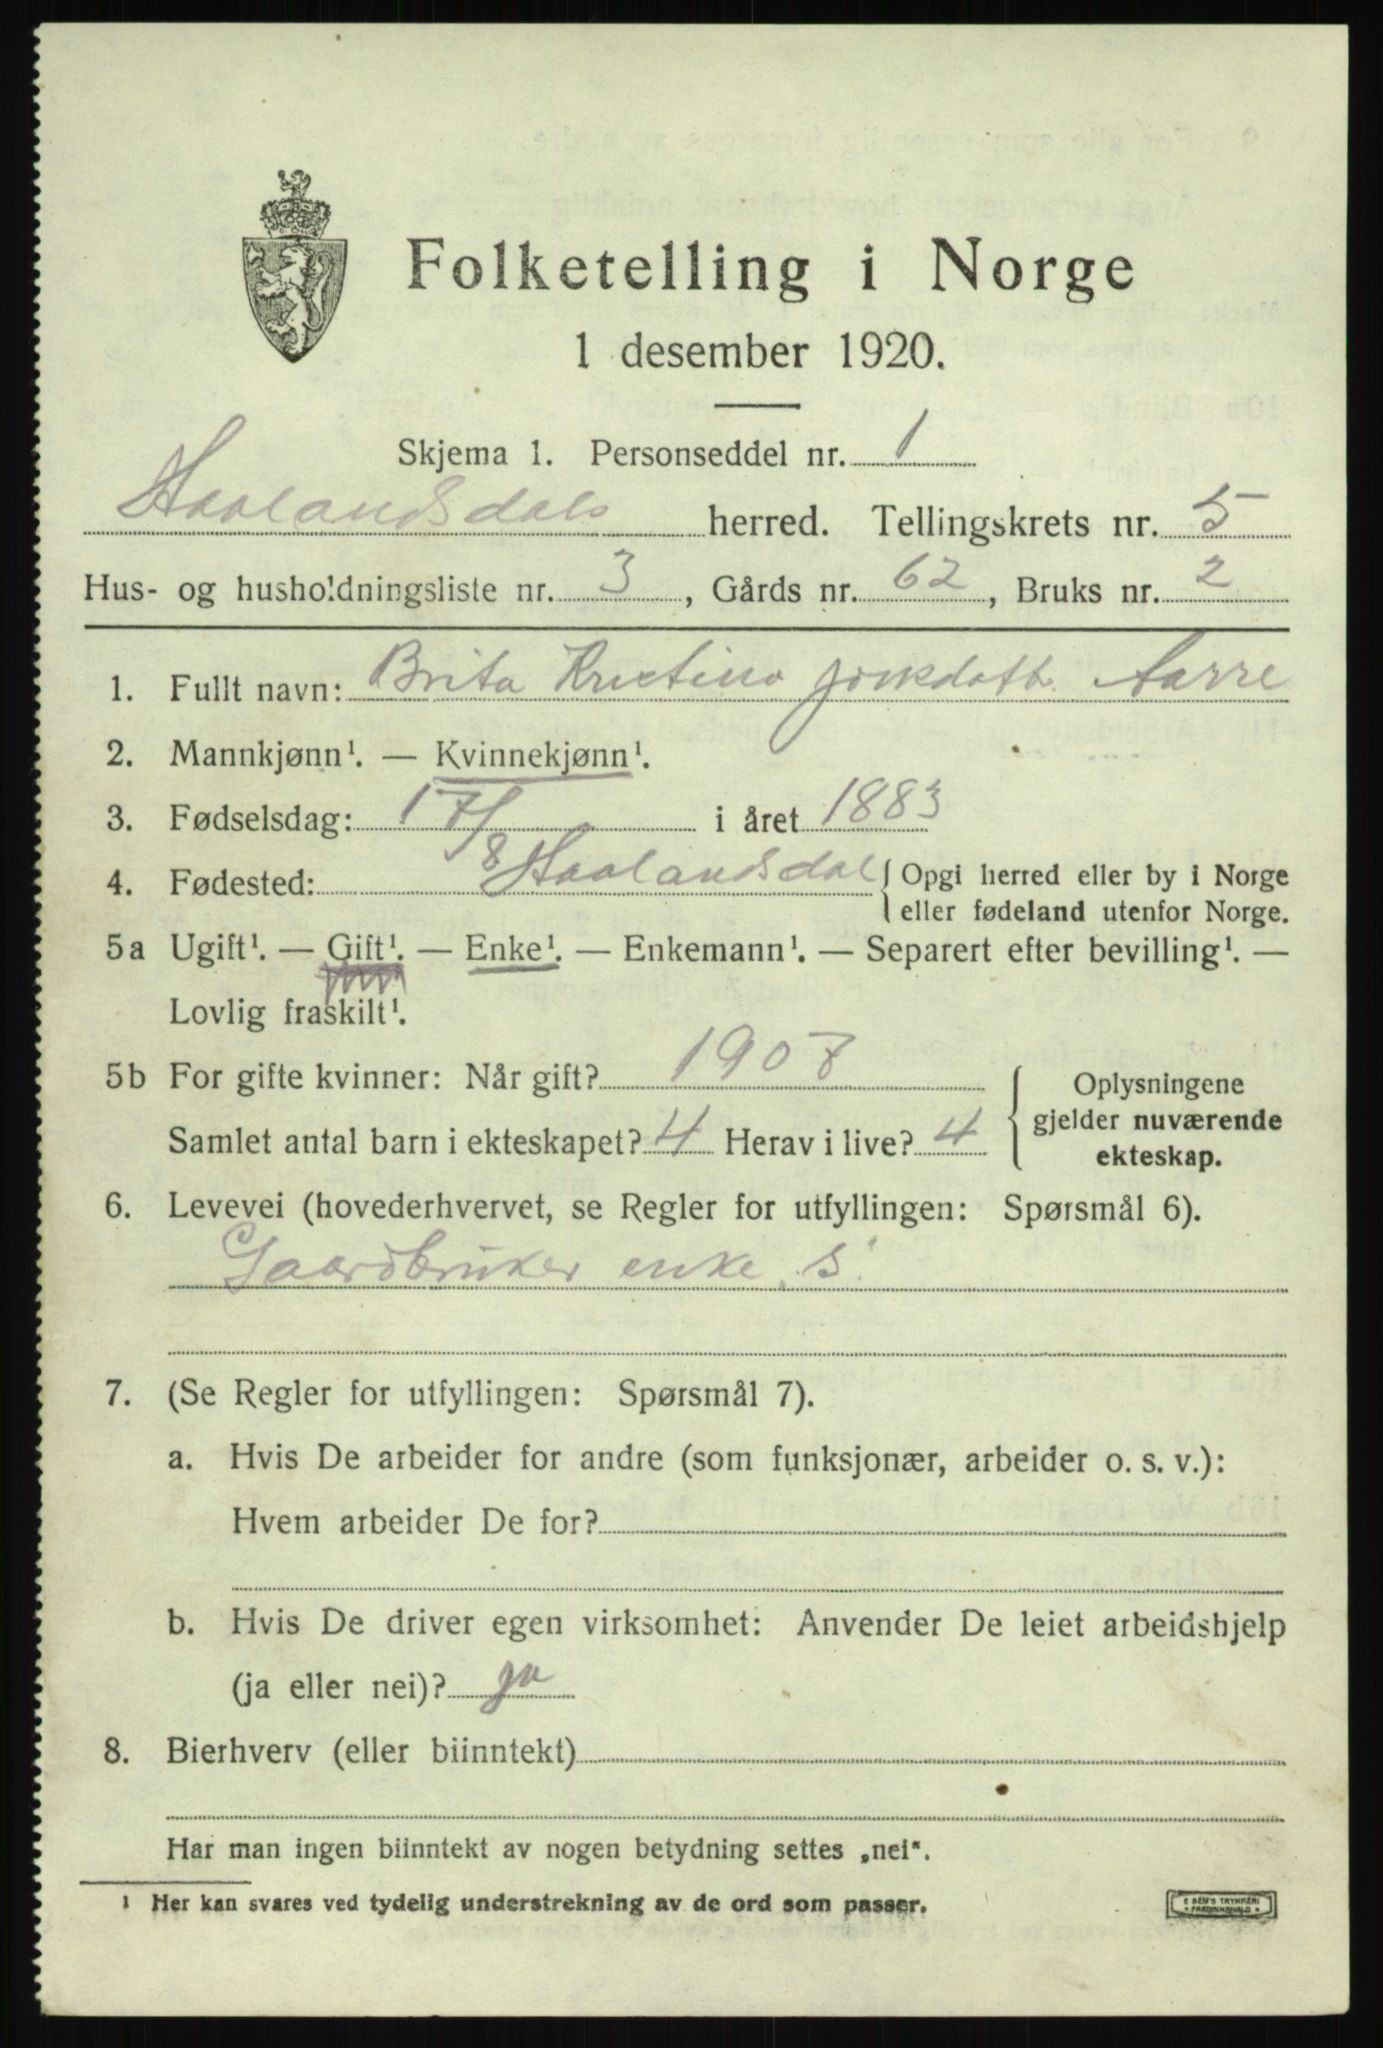 Folketelling i Norge
1 desember 1920.
Skjema 1. Personseddel nr. 1
Haalandsdals herred. Tellingskrets nr. 5
Hus- og husholdningsliste nr. 3, Gårds nr. 62, Bruks nr. 2
1. Fullt navn: Brita Kristina Aarre
2. Mannkjønn¹. — Kvinnekjønn¹.
3. Fødselsdag: 17/8 i året 1883
4. Fødested: Haalandsdal { Opgi herred eller by i Norge
eller fødeland utenfor Norge.
5a Ugift¹. — Gift¹. — Enke¹. — Enkemann¹. — Separert efter bevilling¹. —
Lovlig fraskilt¹.
5b For gifte kvinner: Når gift? 1907 { Oplysningene
gjelder nuværende
ekteskap.
Samlet antal barn i ekteskapet? 4 Herav i live? 4
6. Levevei (hovederhvervet, se Regler for utfyllingen: Spørsmål 6).
Gaardbruker enke, S.
7. (Se Regler for utfyllingen: Spørsmål 7).
a. Hvis De arbeider for andre (som funksjonær, arbeider o. s. v.):
Hvem arbeider De for?
b. Hvis De driver egen virksomhet: Anvender De leiet arbeidshjelp
(ja eller nei)? ja
8. Bierhverv (eller biinntekt)
Har man ingen biinntekt av nogen betydning settes „nei“.
¹ Her kan svares ved tydelig understrekning av de ord som passer.
E. SEM'S TRYKKERI
FREDRIKSHALD